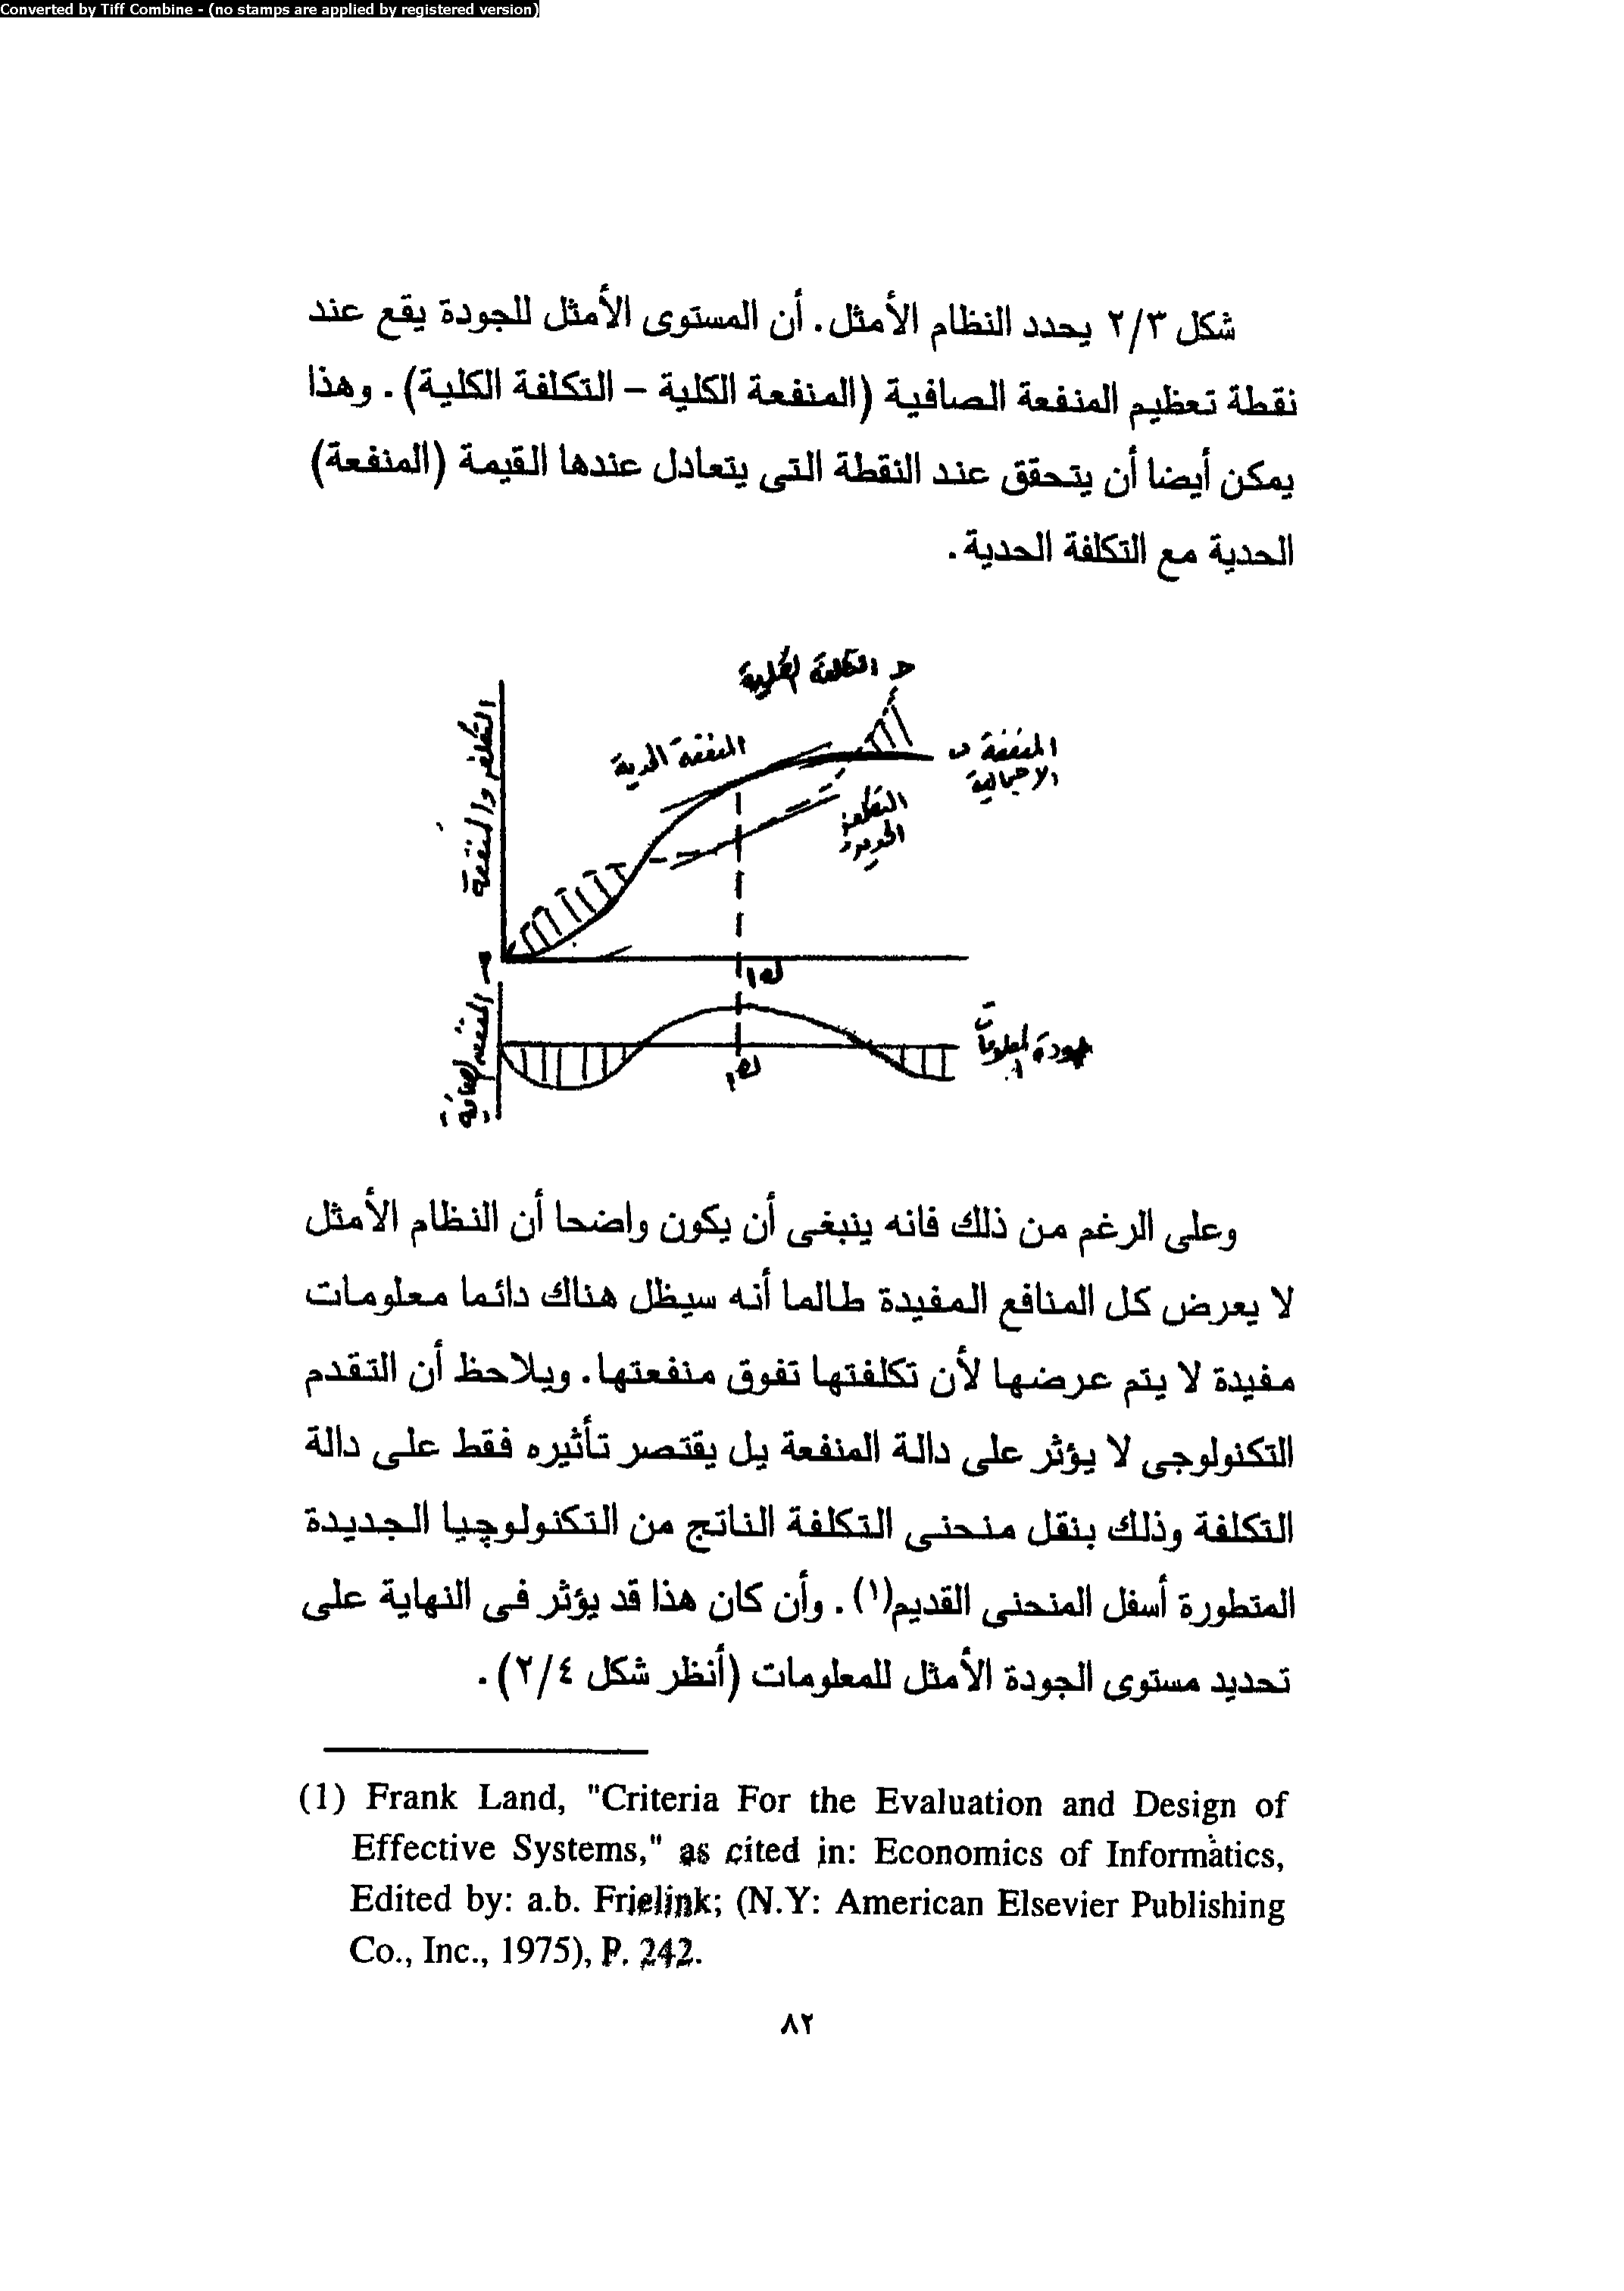 Converted by Tiff Combine - (no stamps are applied by registered version)
شكل ٢/٣ يحدد النظام الأمثل. أن المستوى الأمثل للجودة يقع عند
نقطة تعظيم المنفعة الصافية (المنفعة الكلية – التكلفة الكلية). وهذا
يمكن أيضا أن يتحقق عند النقطة التى يتعادل عندها القيمة (المنفعة)
الحدية مع التكلفة الحدية.
حـ التكلفة الكلية
المنفعة الحدية
المنفعة
الاجمالية
التكلفة
التكلفة والمنفعة
ك١
جودة المعلومات
ك١
المنفعة الصافية
وعلى الرغم من ذلك فانه ينبغى أن يكون واضحا أن النظام الأمثل
لا يعرض كل المنافع المفيدة طالما أنه سيظل هناك دائما معلومات
مفيدة لا يتم عرضها لأن تكلفتها تفوق منفعتها. ويلاحظ أن التقدم
التكنولوجى لا يؤثر على دالة المنفعة يل يقتصر تأثيره فقط على دالة
التكلفة وذلك بنقل منحنى التكلفة الناتج من التكنولوچيا الجديدة
المتطورة أسفل المنحنى القديم(١). وأن كان هذا قد يؤثر فى النهاية على
تحديد مستوى الجودة الأمثل للمعلومات (أنظر شكل ٢/٤).
(1) Frank Land, "Criteria For the Evaluation and Design of
Effective Systems," as cited in: Economics of Informatics,
Edited by: a.b. Frielink; (N.Y: American Elsevier Publishing
Co., Inc., 1975), P. 242.
٨٢